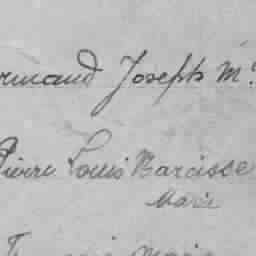 rmand Joseph M
Pierre Louis Narcisse
Marie